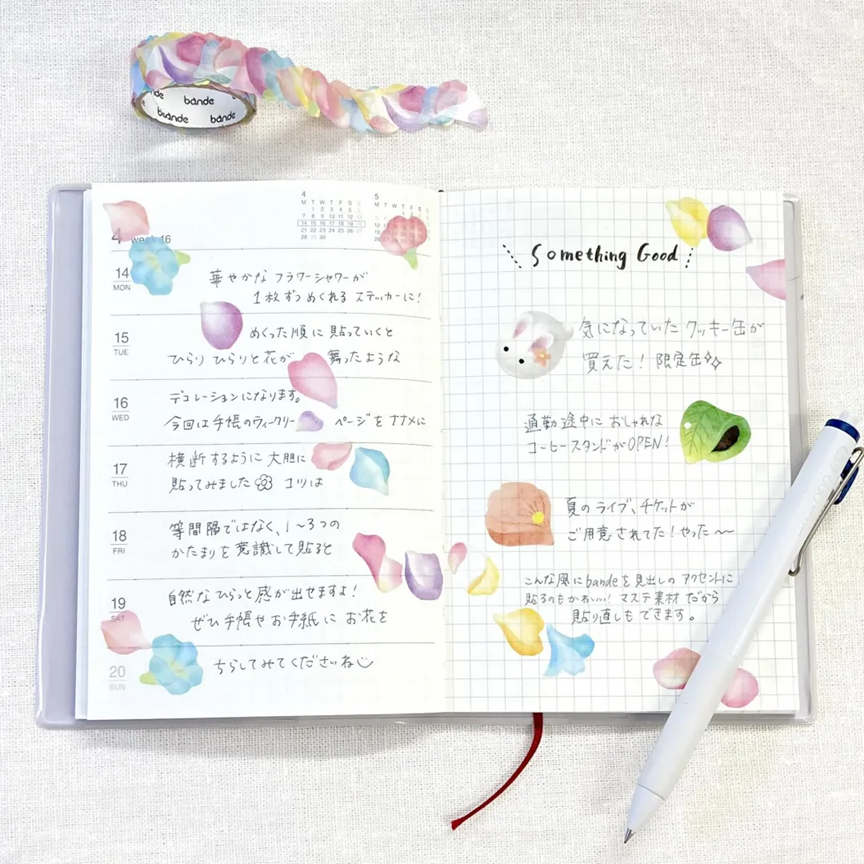 bande
bande
bande
4 week 16
4
M T W T F S S
1 2 3 4 5 6
7 8 9 10 11 12 13
14 15 16 17 18 19 20
21 22 23 24 25 26 27
28 29 30
5
M T W T F S S
14
MON
華やかな フラワーシャワーが
1枚ずつめくれる ステッカーに!
15
TUE
めくった順に 貼っていくと
ひらり ひらりと花が 舞ったような
16
WED
デコレーションになります。
今回は手帳のウィークリー ページを ナナメに
17
THU
横断するように 大胆に
貼ってみました コツは
18
FRI
等間隔ではなく、1〜3つの
かたまりを意識して貼ると
19
SAT
自然なひらっと感が出せますよ!
ぜひ手帳やお手紙に お花を
20
SUN
ちらしてみてくださいね
Something Good
気になっていた クッキー缶が
買えた! 限定缶
通勤途中に おしゃれな
コーヒースタンドがOPEN!
夏の ライブ、チケットが
ご用意されてた! やった〜〜
こんな風にbandeを見出しの アクセントに
貼るのもかわいい! マステ素材だから
貼り直しもできます。